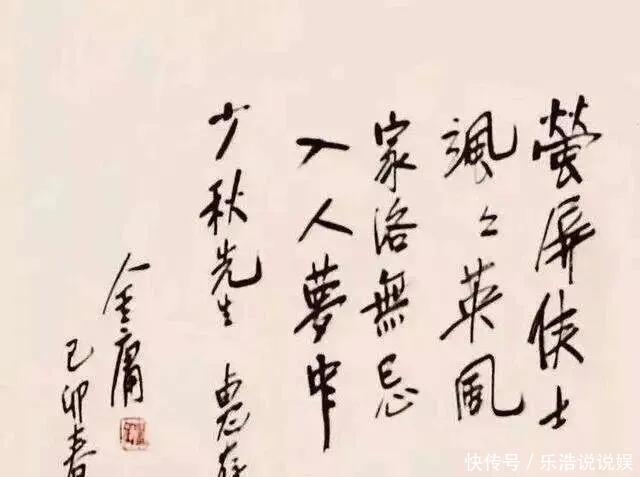 螢屏俠士
颯々英風
家洛無忌
入人夢中
少秋先生 惠存
金庸
己卯春
快传号 / 乐浩说说娱